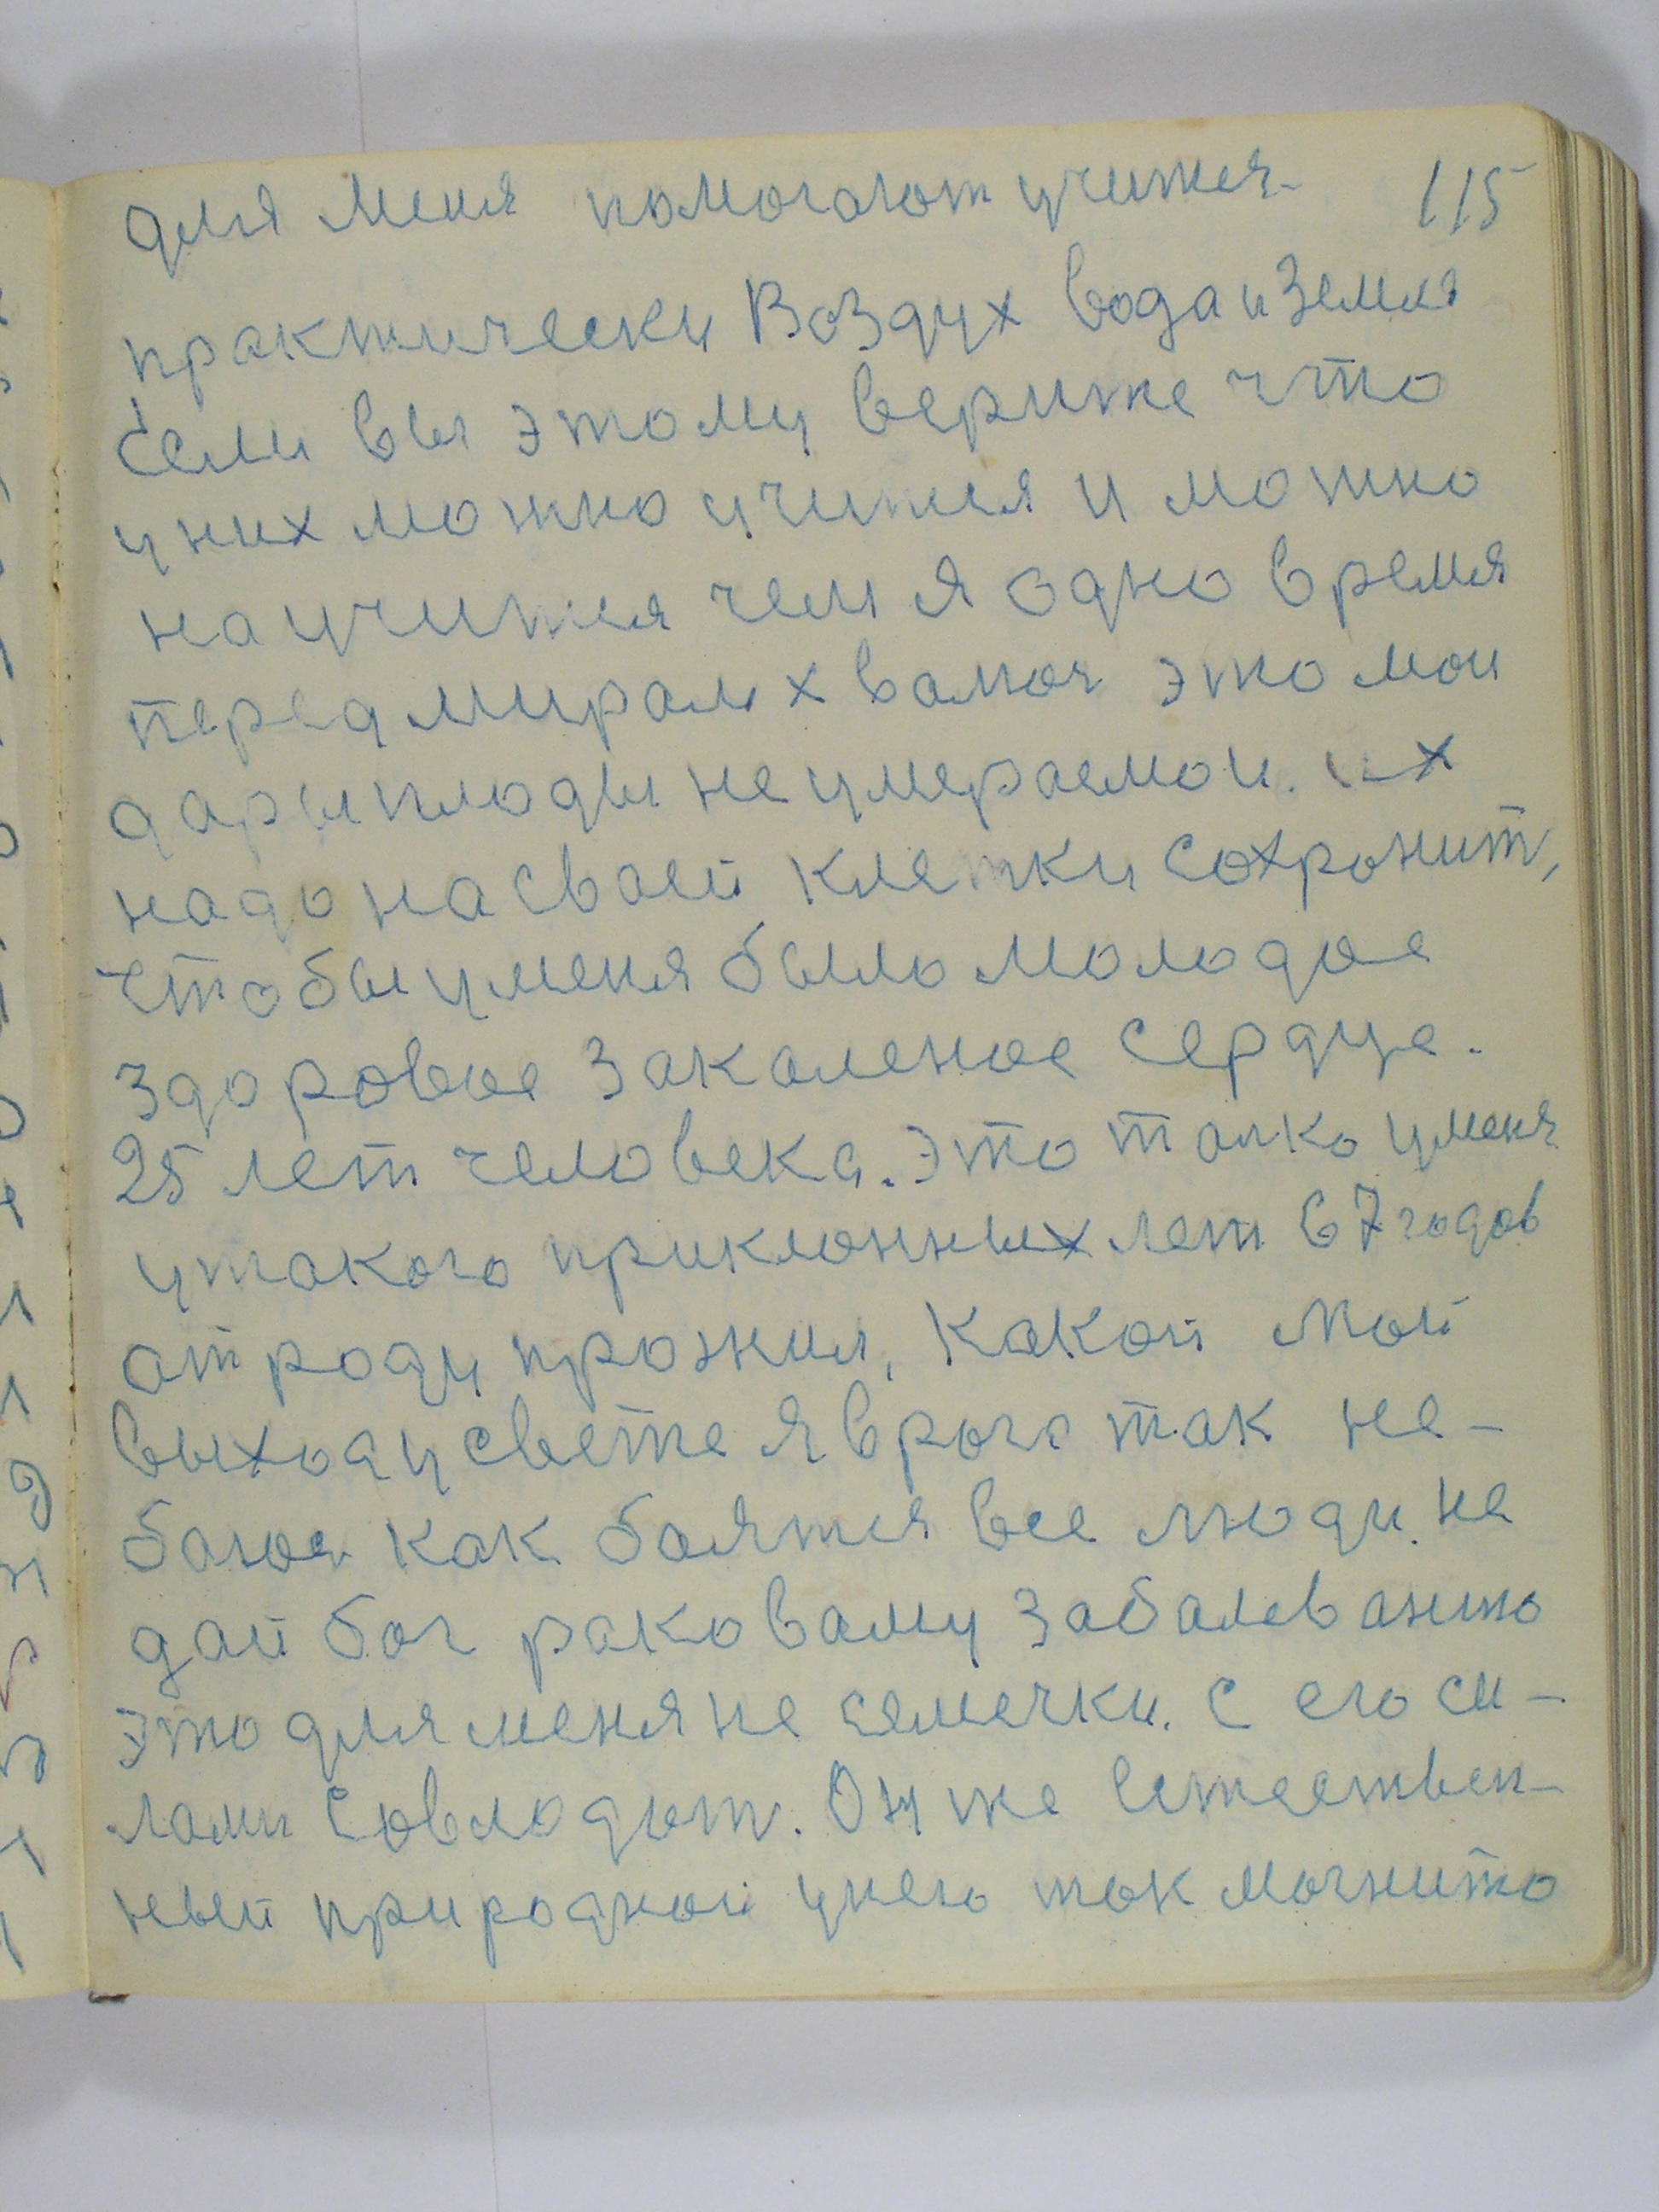 для меня помогают учится 115
практически Воздух вода и Земля
Если вы этому верите что
у них можно учится и можно
научится чем я одно время
перед миром хвалюсь это мои
дары плоды неумераемои. их
надо на своей клетки сохронит,
чтобы у меня было молодое
здоровое закаленое сердце.
25 лет человека. это толко у меня
у такого приклонных лет 67 годов
от роду прожил, какой мой
выход у свете я врага так не-
боюся как боятся все люди. не
дай бог раковаму заболеванию
это для меня не семечки. с его си-
лами совлодают. Он же Естествен-
ный природной у него ток магнито